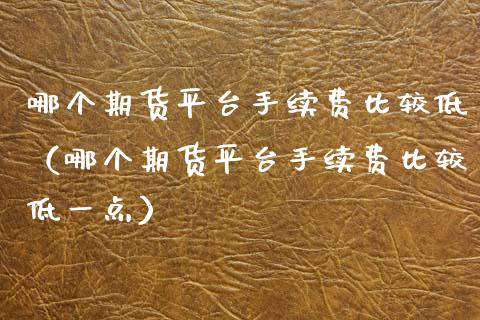 哪个期货平台手续费比较低
（哪个期货平台手续费比较
低一点）